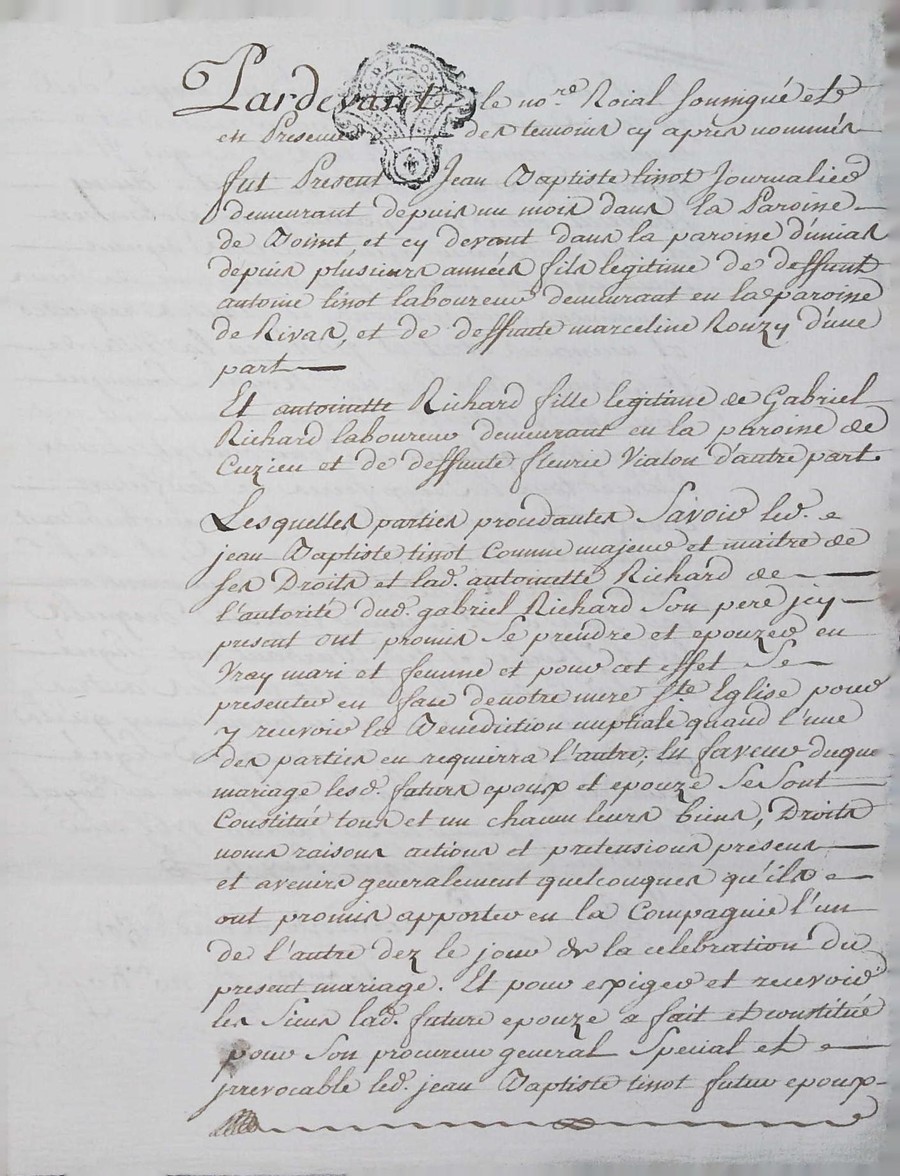 Pardevant le no.re Roial soussigné et
en Presence des temoins cy après nommés
fut Present Jean Baptiste tissot Journalier
demeurant depuis un mois dans la Paroisse
de Boisset et cy devant dans la paroisse d'unias
depuis plusieurs années fils legitime de deffunt
antoine tissot laboureur demeurant en la paroisse
de Rivas, et de deffunte marceline Rouzy d'une
part
Et antoinette Richard fille legitime de Gabriel
Richard laboureur demeurant en la paroisse de
Cuzieu et de deffunte fleurie Vialon d'autre part
Lesquelles parties procedantes Savoir led.
jean Baptiste tissot Comme majeur et maitre de
ses Droits et lad. antoinette Richard de
l'autorité dud. gabriel Richard Son pere jcy
present ont promis Se prendre et epouzer en
Vray mari et femme et pour cet effet Se
presenter en face denotre mere Ste Eglise pour
y recevoir la Benediction nuptiale quand l'une
des parties en requierra l'autre; En faveur duque
mariage lesd. futurs epoux et epouze Se Sont
Constitué tous et un chacun leurs biens, Droits
noms raisons actions et pretensions presens
et avenirs generalement quelconques qu'ils
ont promis apporter en la Compagnie l'un
de l'autre dez le jour de la celebration du
present mariage. Et pour exiger et recevoir
les Siens lad. future epouze a fait et constitué
pour Son procureur general Special et
jrrevocable led. jean Baptiste tissot futur epoux